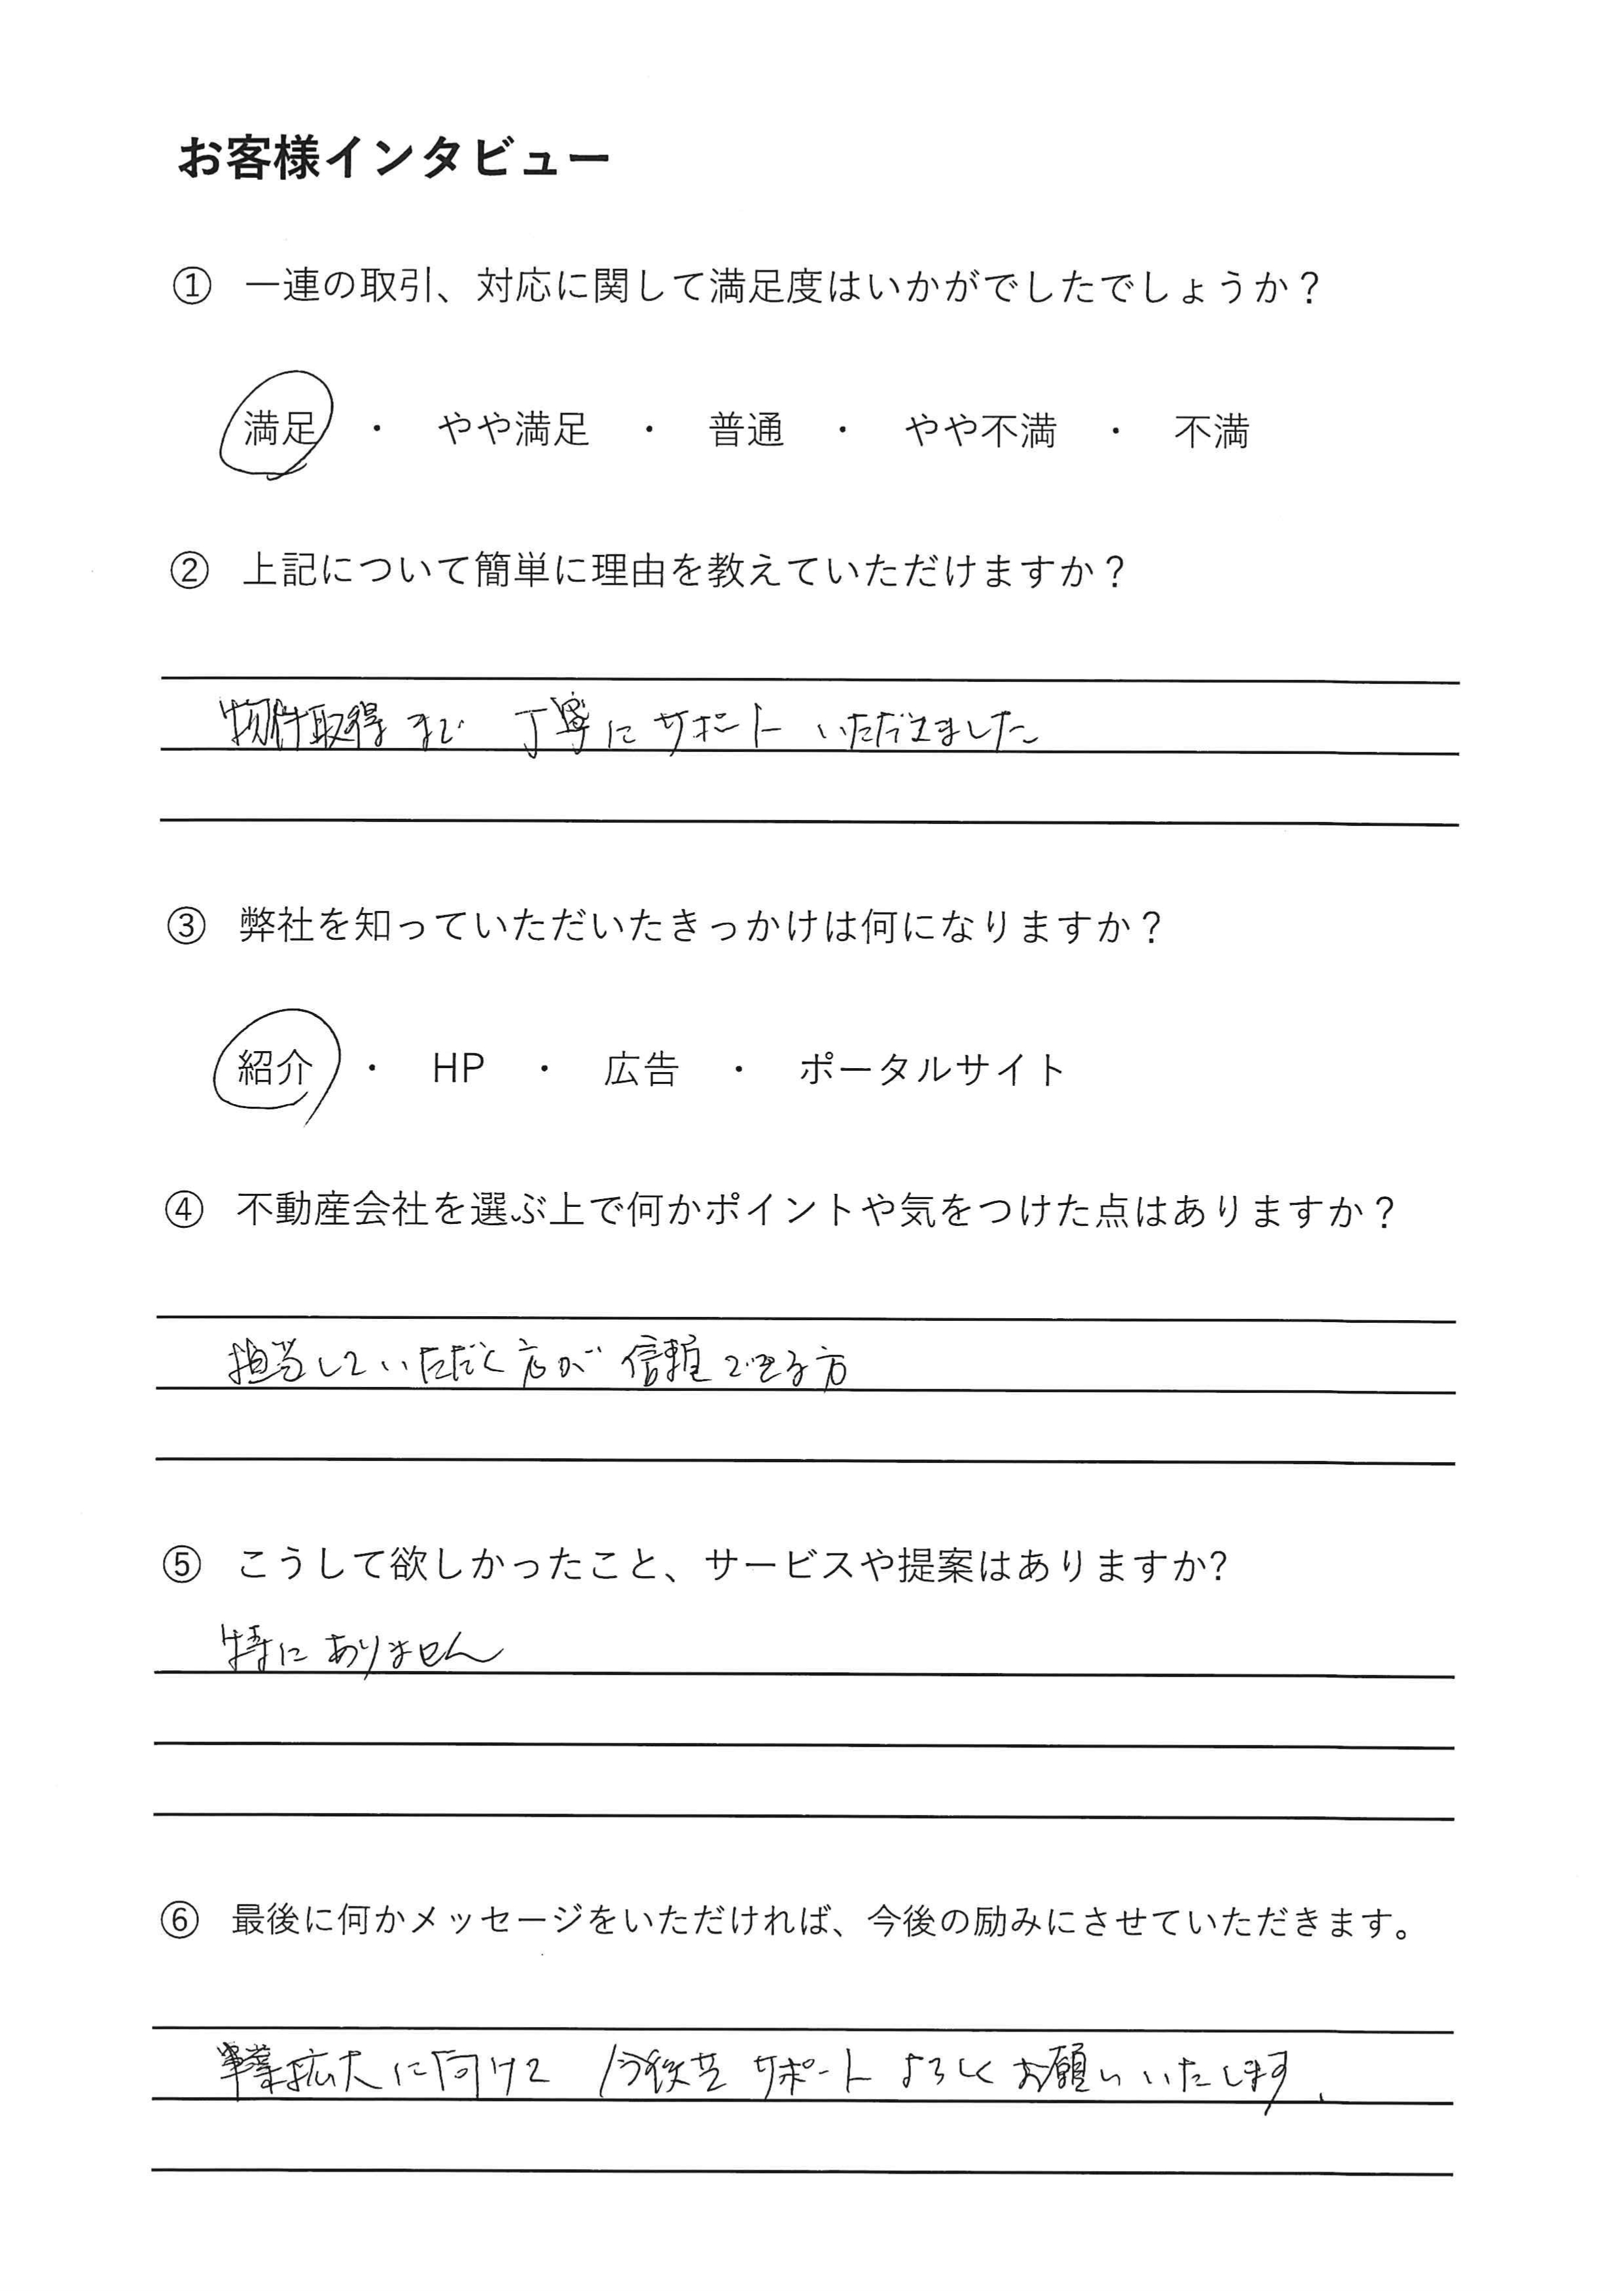 お客様インタビュー
① 一連の取引、対応に関して満足度はいかがでしたでしょうか？
満足 ・ やや満足 ・ 普通 ・ やや不満 ・ 不満
② 上記について簡単に理由を教えていただけますか？
物件取得まで 丁寧にサポートいただきました
③ 弊社を知っていただいたきっかけは何になりますか？
紹介 ・ HP ・ 広告 ・ ポータルサイト
④ 不動産会社を選ぶ上で何かポイントや気をつけた点はありますか？
担当していただく方が信頼できる方
⑤ こうして欲しかったこと、サービスや提案はありますか?
特にありません
⑥ 最後に何かメッセージをいただければ、今後の励みにさせていただきます。
事業拡大に向けて 今後共 サポートよろしくお願いいたします、